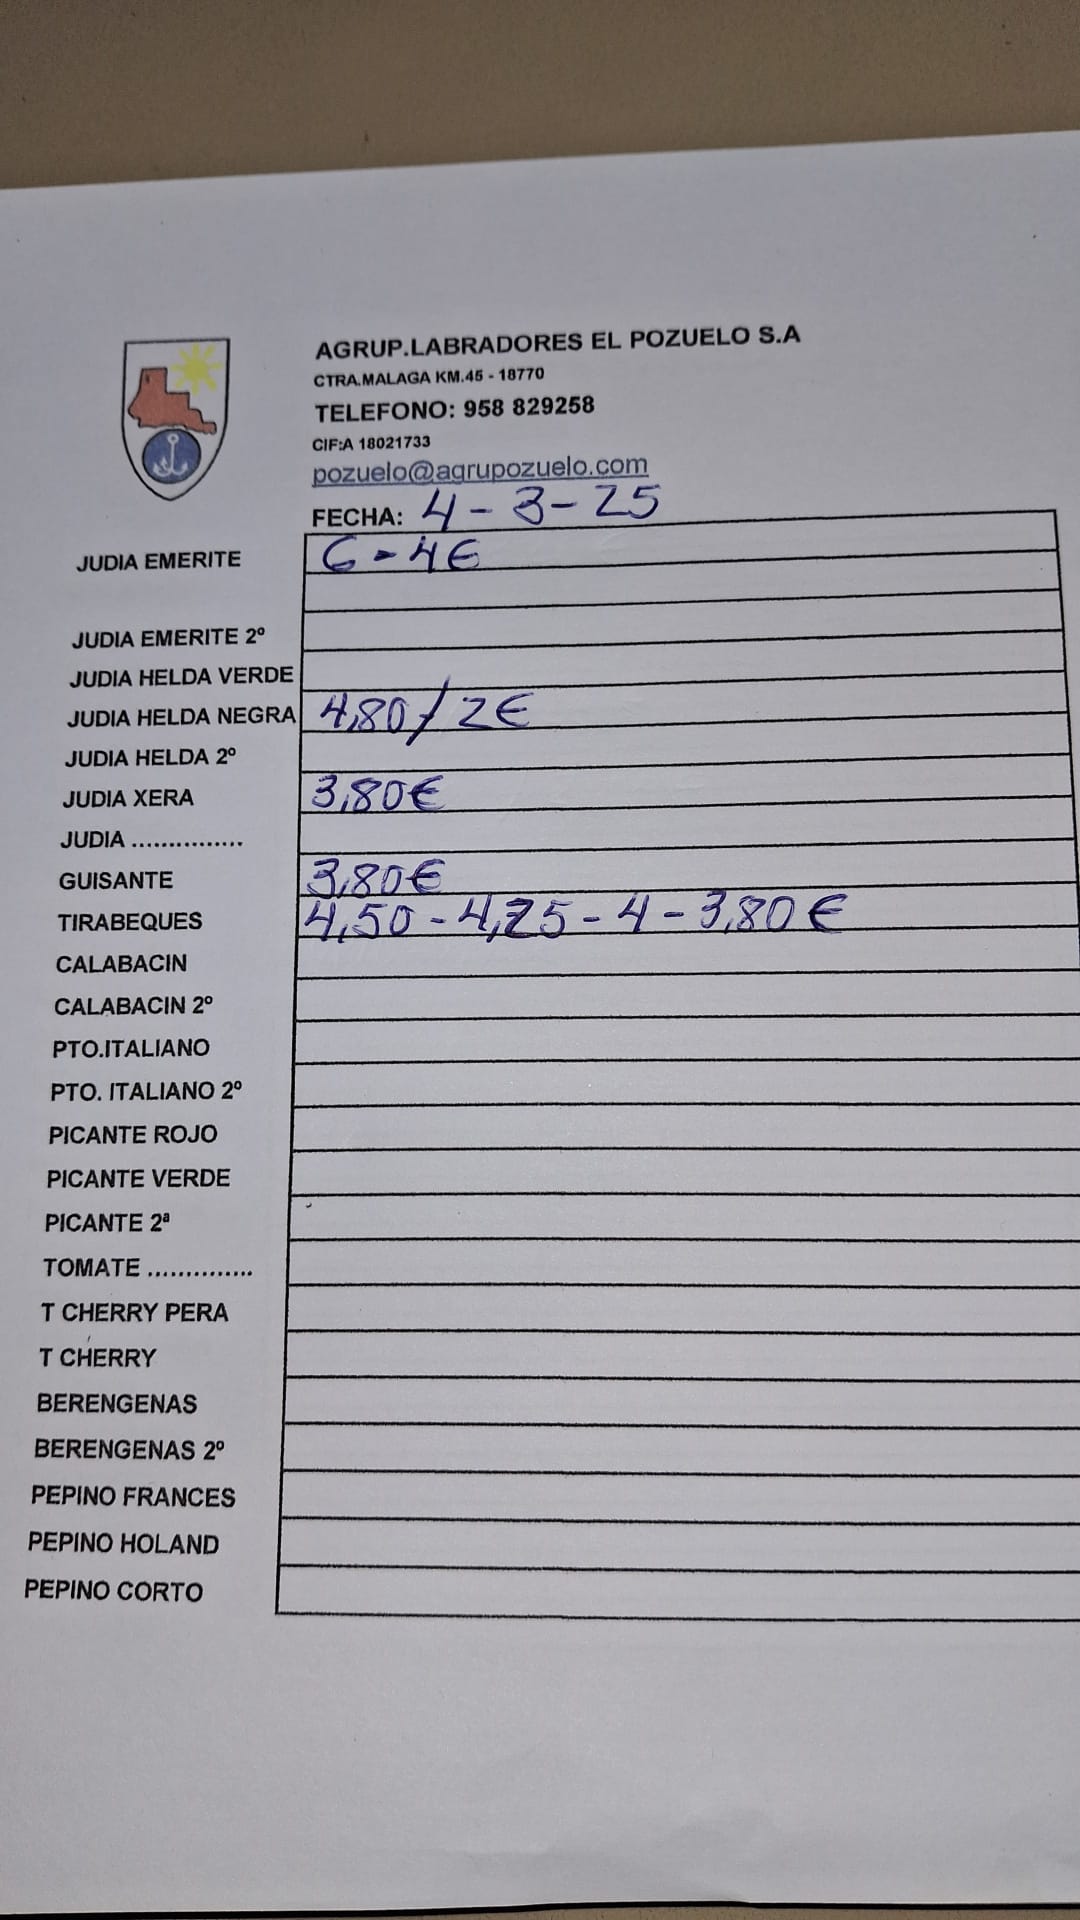 AGRUP.LABRADORES EL POZUELO S.A
CTRA.MALAGA KM.45 - 18770
TELEFONO: 958 829258
CIF:A 18021733
pozuelo@agrupozuelo.com
FECHA: 4-3-25
JUDIA EMERITE 6-4€
JUDIA EMERITE 2º
JUDIA HELDA VERDE
JUDIA HELDA NEGRA 4,80/2€
JUDIA HELDA 2º
JUDIA XERA 3,80€
JUDIA ...............
GUISANTE 3,80€
TIRABEQUES 4,50-4,25-4-3,80€
CALABACIN
CALABACIN 2º
PTO.ITALIANO
PTO. ITALIANO 2º
PICANTE ROJO
PICANTE VERDE
PICANTE 2ª
TOMATE ..............
T CHERRY PERA
T CHERRY
BERENGENAS
BERENGENAS 2º
PEPINO FRANCES
PEPINO HOLAND
PEPINO CORTO